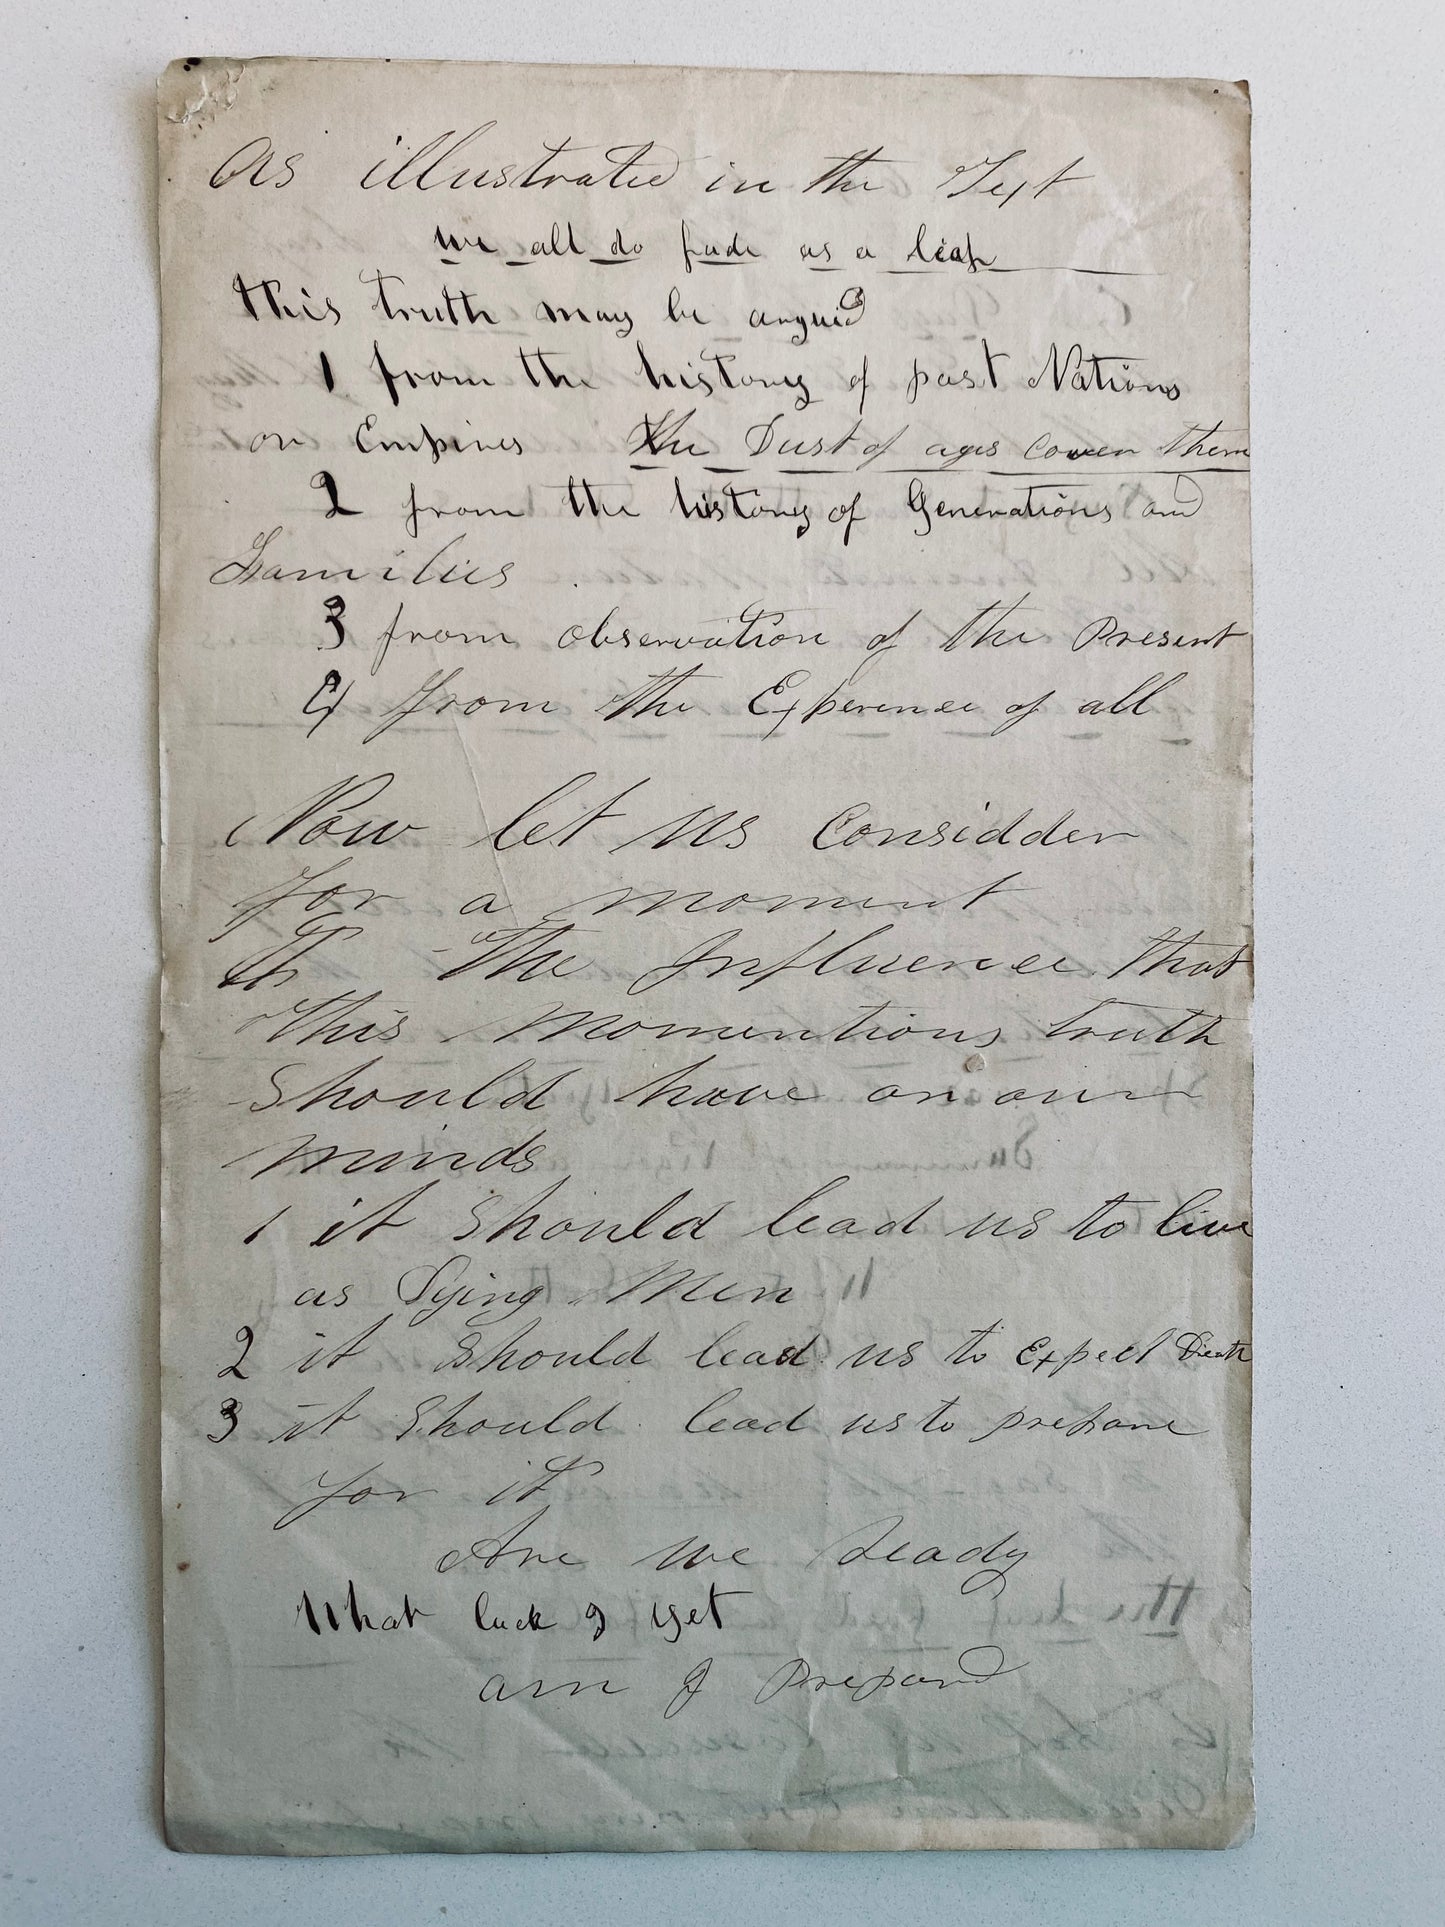 As illustrated in the Text
we all do fade as a leaf
this truth may be argued
1 from the history of past Nations
or Empires the Dust of ages cover them
2 from the history of Generations and
Families
3 from observation of the Present
4 from the Experence of all
Now let us Considder
for a moment
the Influence that
this Momentious truth
Should have on our
minds
1 it Should lead us to live
as Dying Men
2 it Should lead us to Expect Death
3 it Should lead us to prepare
for it
Are we Ready
What lack I yet
am I Prepard